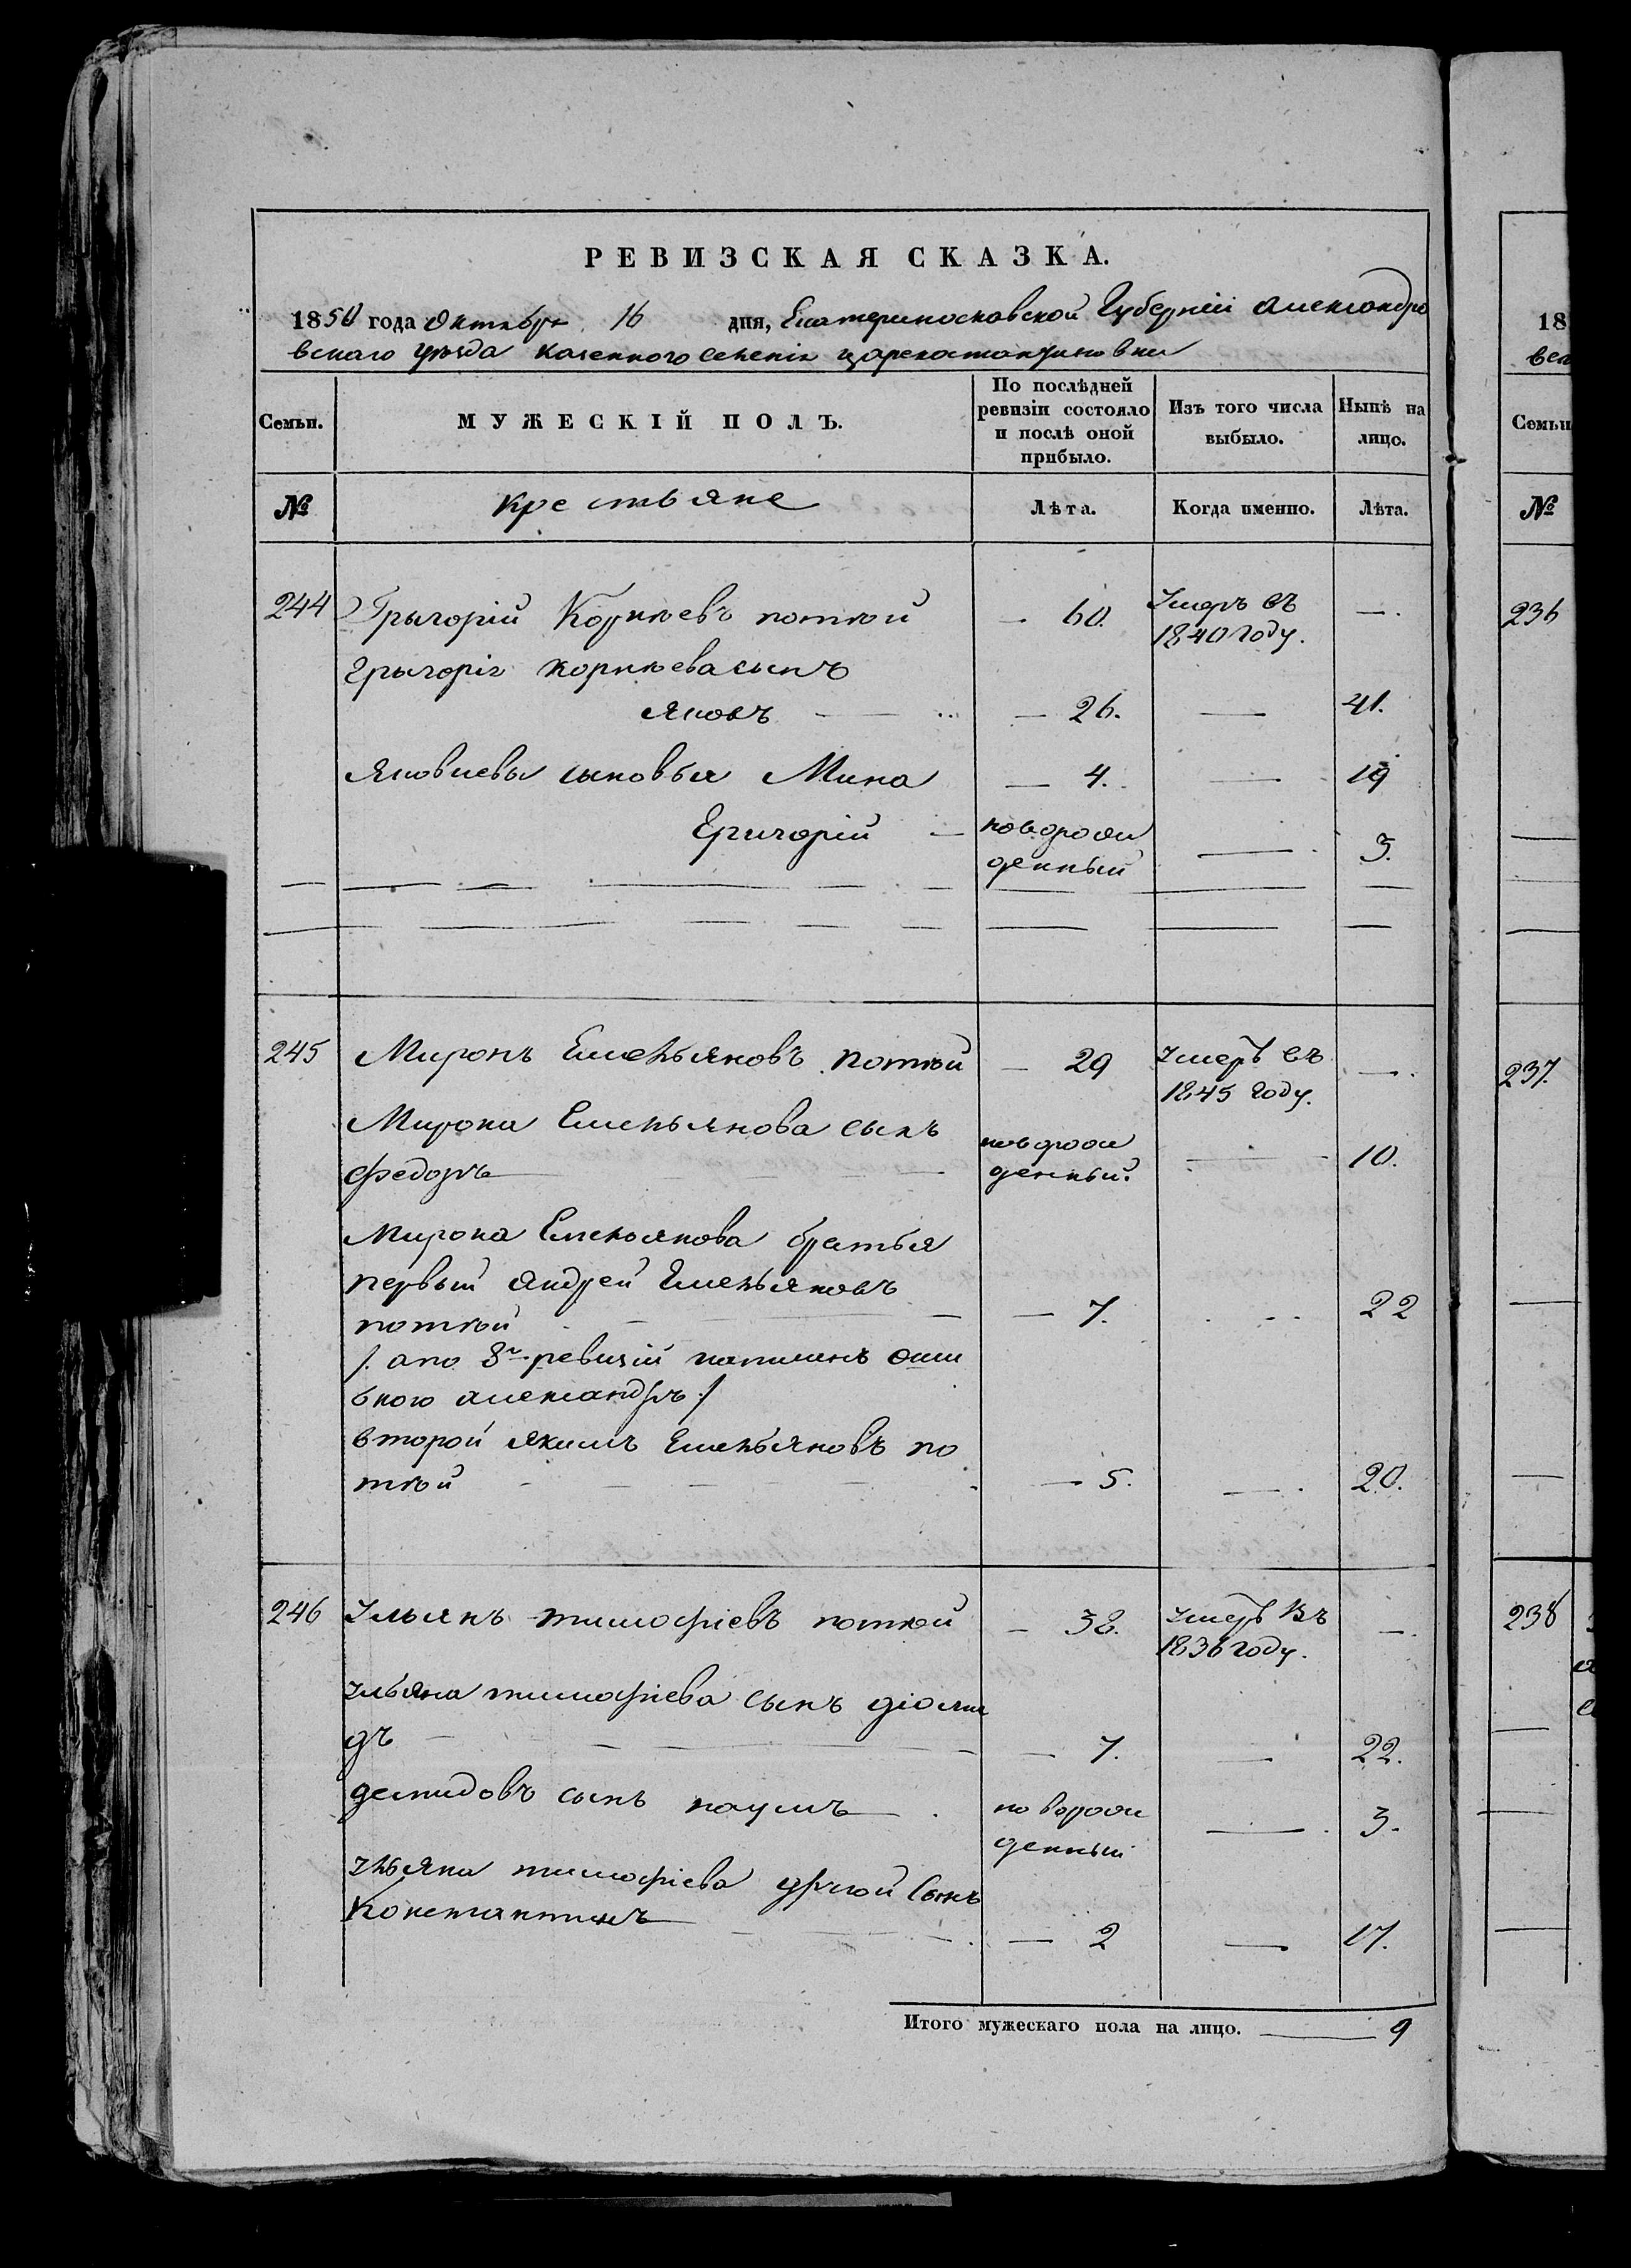 РЕВИЗСКАЯ СКАЗКА.
1850 года Октября 16 дня, Екатеринославской Губерніи Александро
вскаго уѣзда казенного селенія Цареконстантиновки
Семьи.
МУЖЕСКІЙ ПОЛЪ.
По послѣдней ревизіи состояло и послѣ оной прибыло.
Изъ того числа выбыло.
Нынѣ на лицо.
№
крестьяне
Лѣта.
Когда именно.
Лѣта.
244 Грыгорій Корнѣевъ — 60. Умеръ въ 1840 году. —
Грыгорія корнѣева сынъ
Яковъ — 26. — 41.
Яковлевы сыновья Мина — 4. — 19
Григорій — новорож
денный — 3.
245 Миронъ Емельяновъ — 29 Умеръ въ 1845 году. —
Мирона Емельянова сынъ
Федоръ — новорож
денный. — 10.
Мирона Емельянова братья
первый Андрей Емельяновъ
— 7. — 22
/. а по 8й ревизіи написанъ оши
бкою александръ ./
второй Якимъ Емельяновъ
— 5. — 20.
246 Ульянъ тимофіевъ — 38. Умеръ въ 1836 году. —
Ульяна тимофіева сынъ діоми
дъ — 7. — 22.
демидовъ сынъ наумъ новорож
денный — 3.
Ульяна тимофіева другой сынъ
Константинъ — 2 — 17.
Итого мужескаго пола на лицо. — 9
18
Семьи
№
236
237.
238